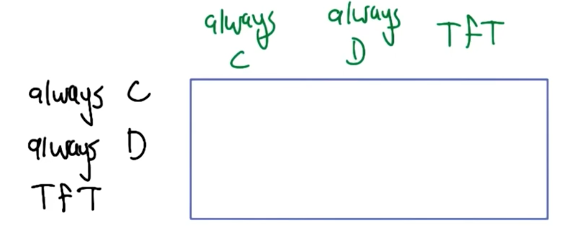 always always TfT
C D
always C
always D
TfT